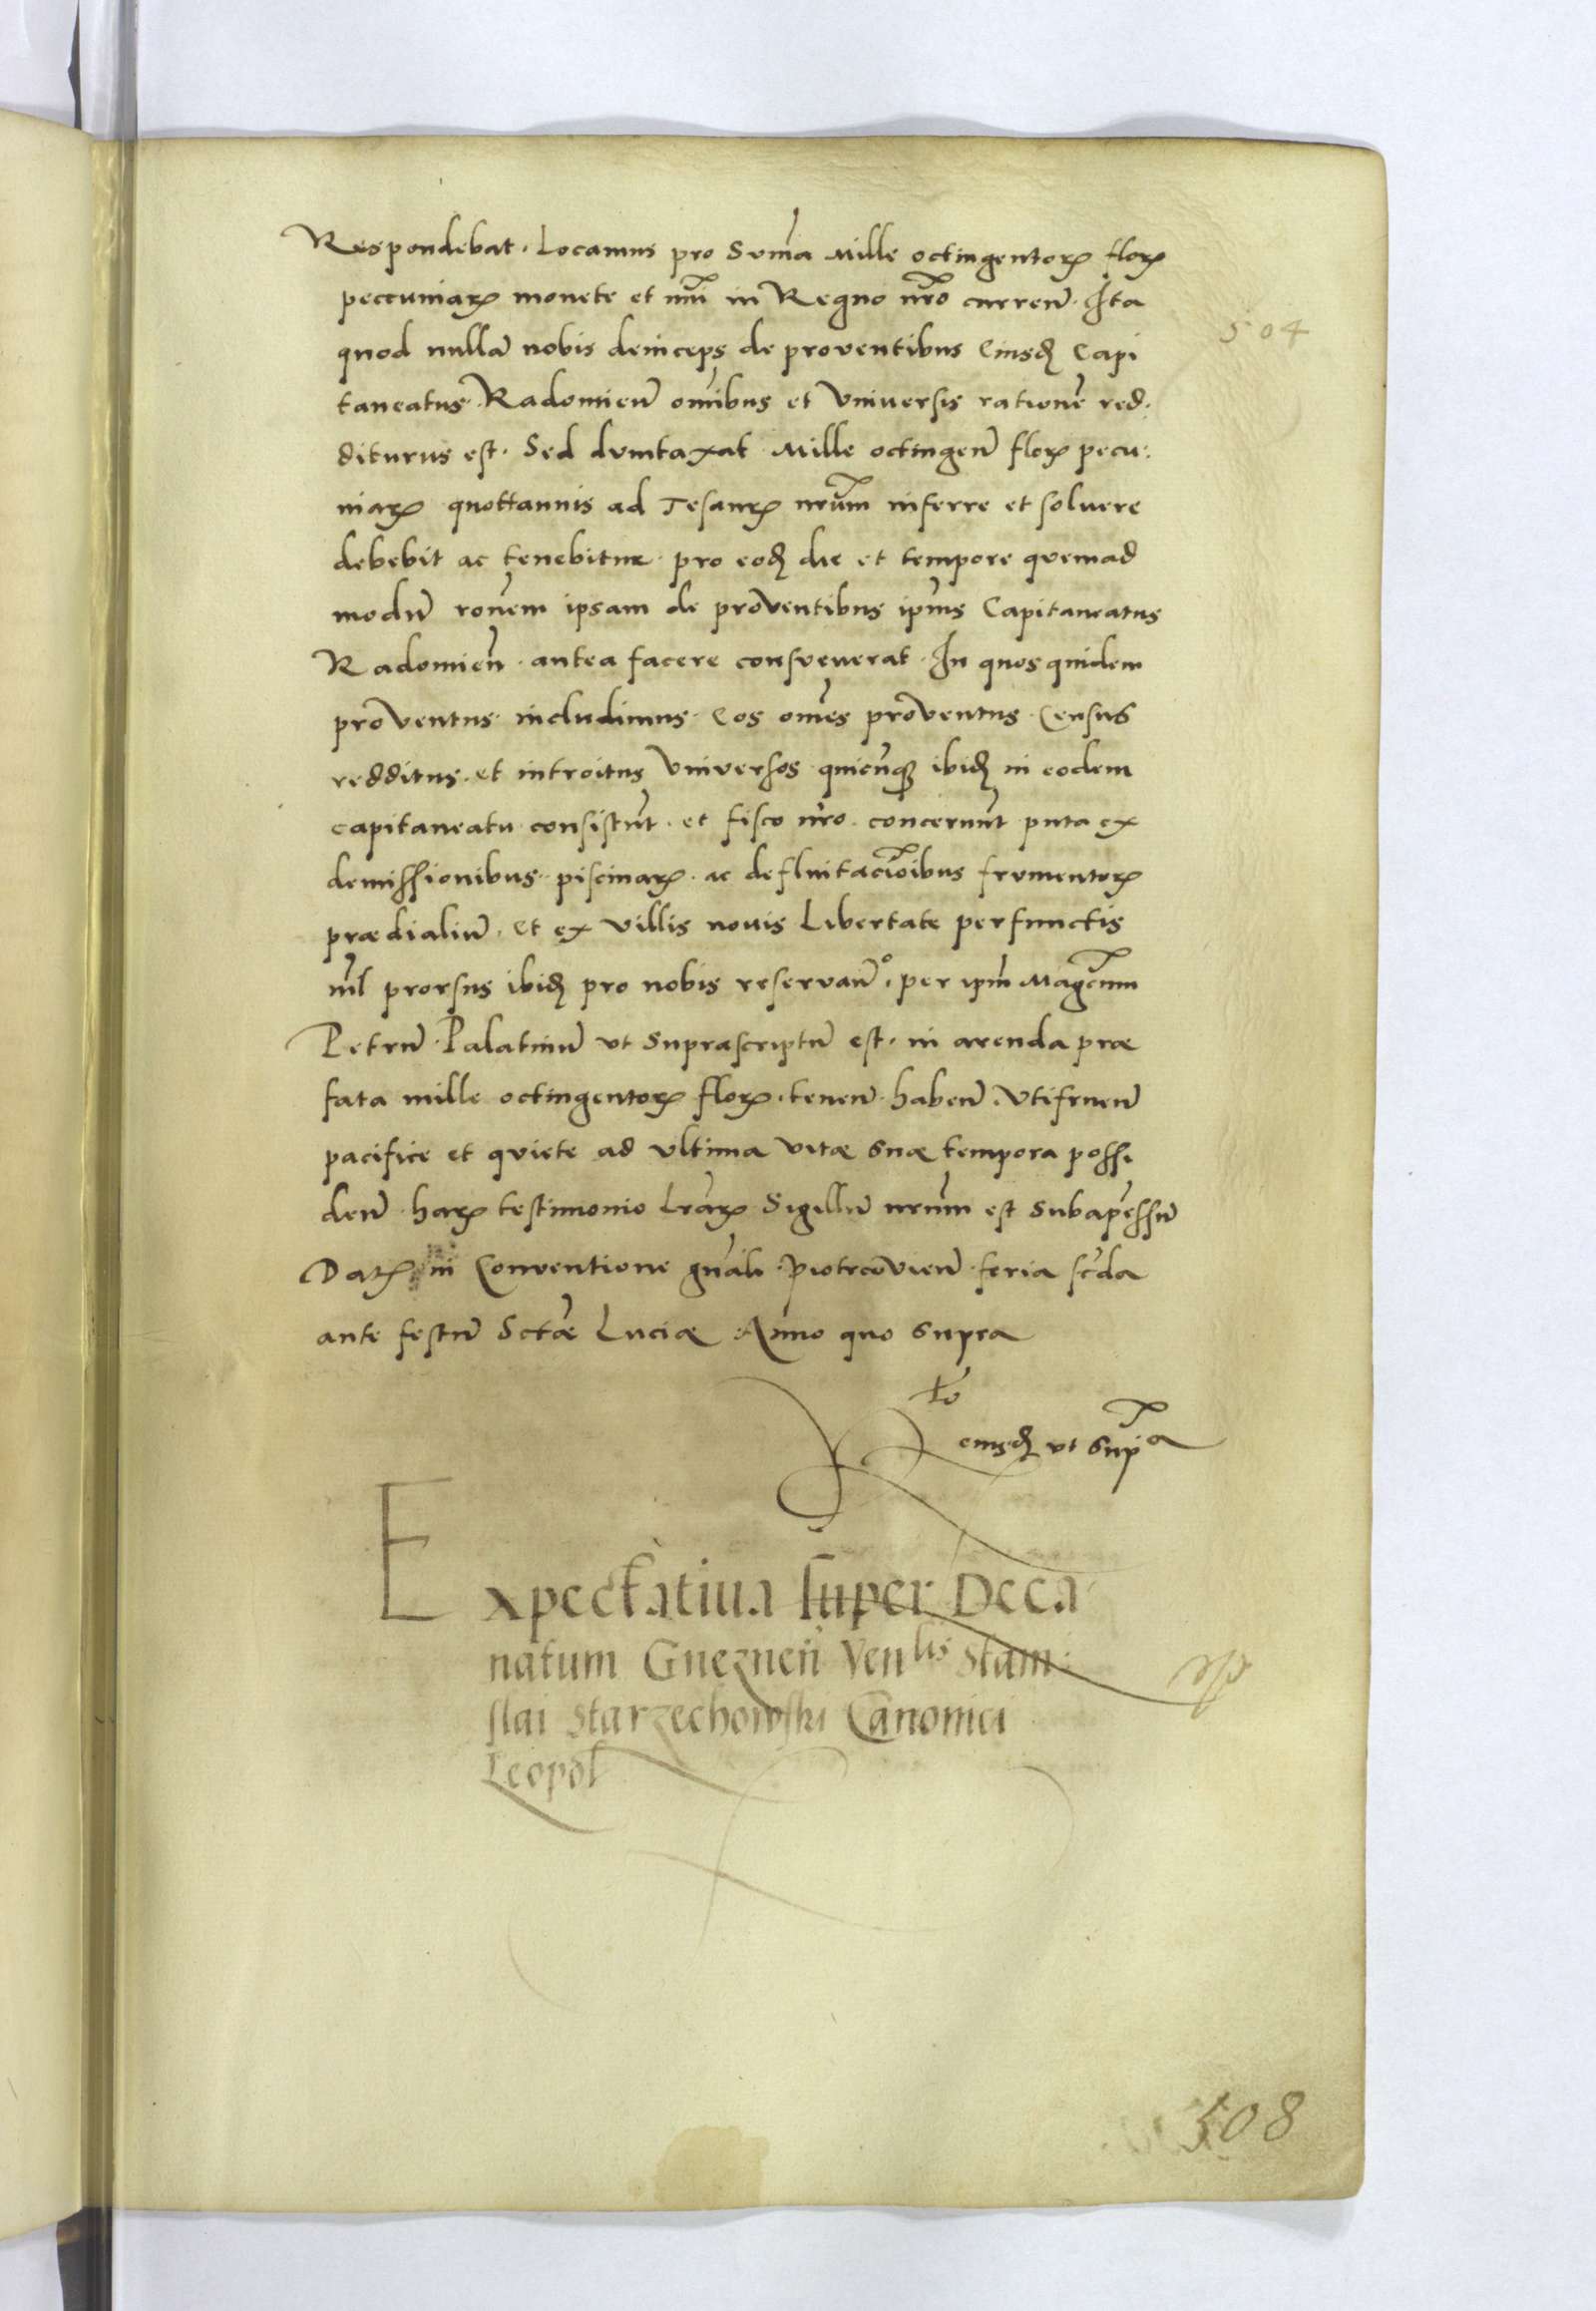 Respondebat. Locamus pro Sum̃a Mille octingentoꝝ floꝝ
peccuniaꝝ monete et nũi in Regno nr̃o curren̄. Ita
504
quod nullā nobis deinceps de proventibus Eiusdꝫ Capi
taneatus Radomien̄ om̃ibus et Universis rationē red.
diturus est. Sed dumtaxat Mille octingen̄ floꝝ pecu:
niaꝝ quottannis ad Tesauꝝ nr̃um inferre et soluere
debebit ac tenebitur pro eodꝫ die et tempore quemad
modū ron̄em ipsam de proventibus ip̃ius Capitaneatus
Radomien̄. antea facere consveuerat. In quos quidem
proventus includimus Eos om̃es proventus. Census
redditus. et introitus Universos quicūqꝫ ibidꝫ in eodem
capitaneatu consistūt. et fisco nr̃o. concernūt puta ex
demissionibus piscinaꝝ. ac defluitacio͠ibus frumentoꝝ
prædialiū. Et ex Villis nouis Libertate perfunctis
nĩl prorsus ibidꝫ pro nobis reservan̄º. per ip̃m Mag̃cum
Petrū Palatinū ut suprascriptū est. in arenda præ
fata mille octingentoꝝ floꝝ. tenen̄. haben̄. Utifruen̄
pacifice et quiete ad ultima vitæ suæ tempora possi
den̄. haꝝ testimonio lr̃aꝝ Sigillū nr̃um est subapēssū
Datꝝ in Conventione gn̄ali piotrcovien̄. feria sc̃da
ante festū Sctæ̃ Luciæ Anno quo supra
R̃o
eiusdꝫ ut supᵃ
Expectatiua super Deca
natum Gneznen̄ Venˡⁱˢ Stani
slai Starzechowski Canonici
Leopol̄
508